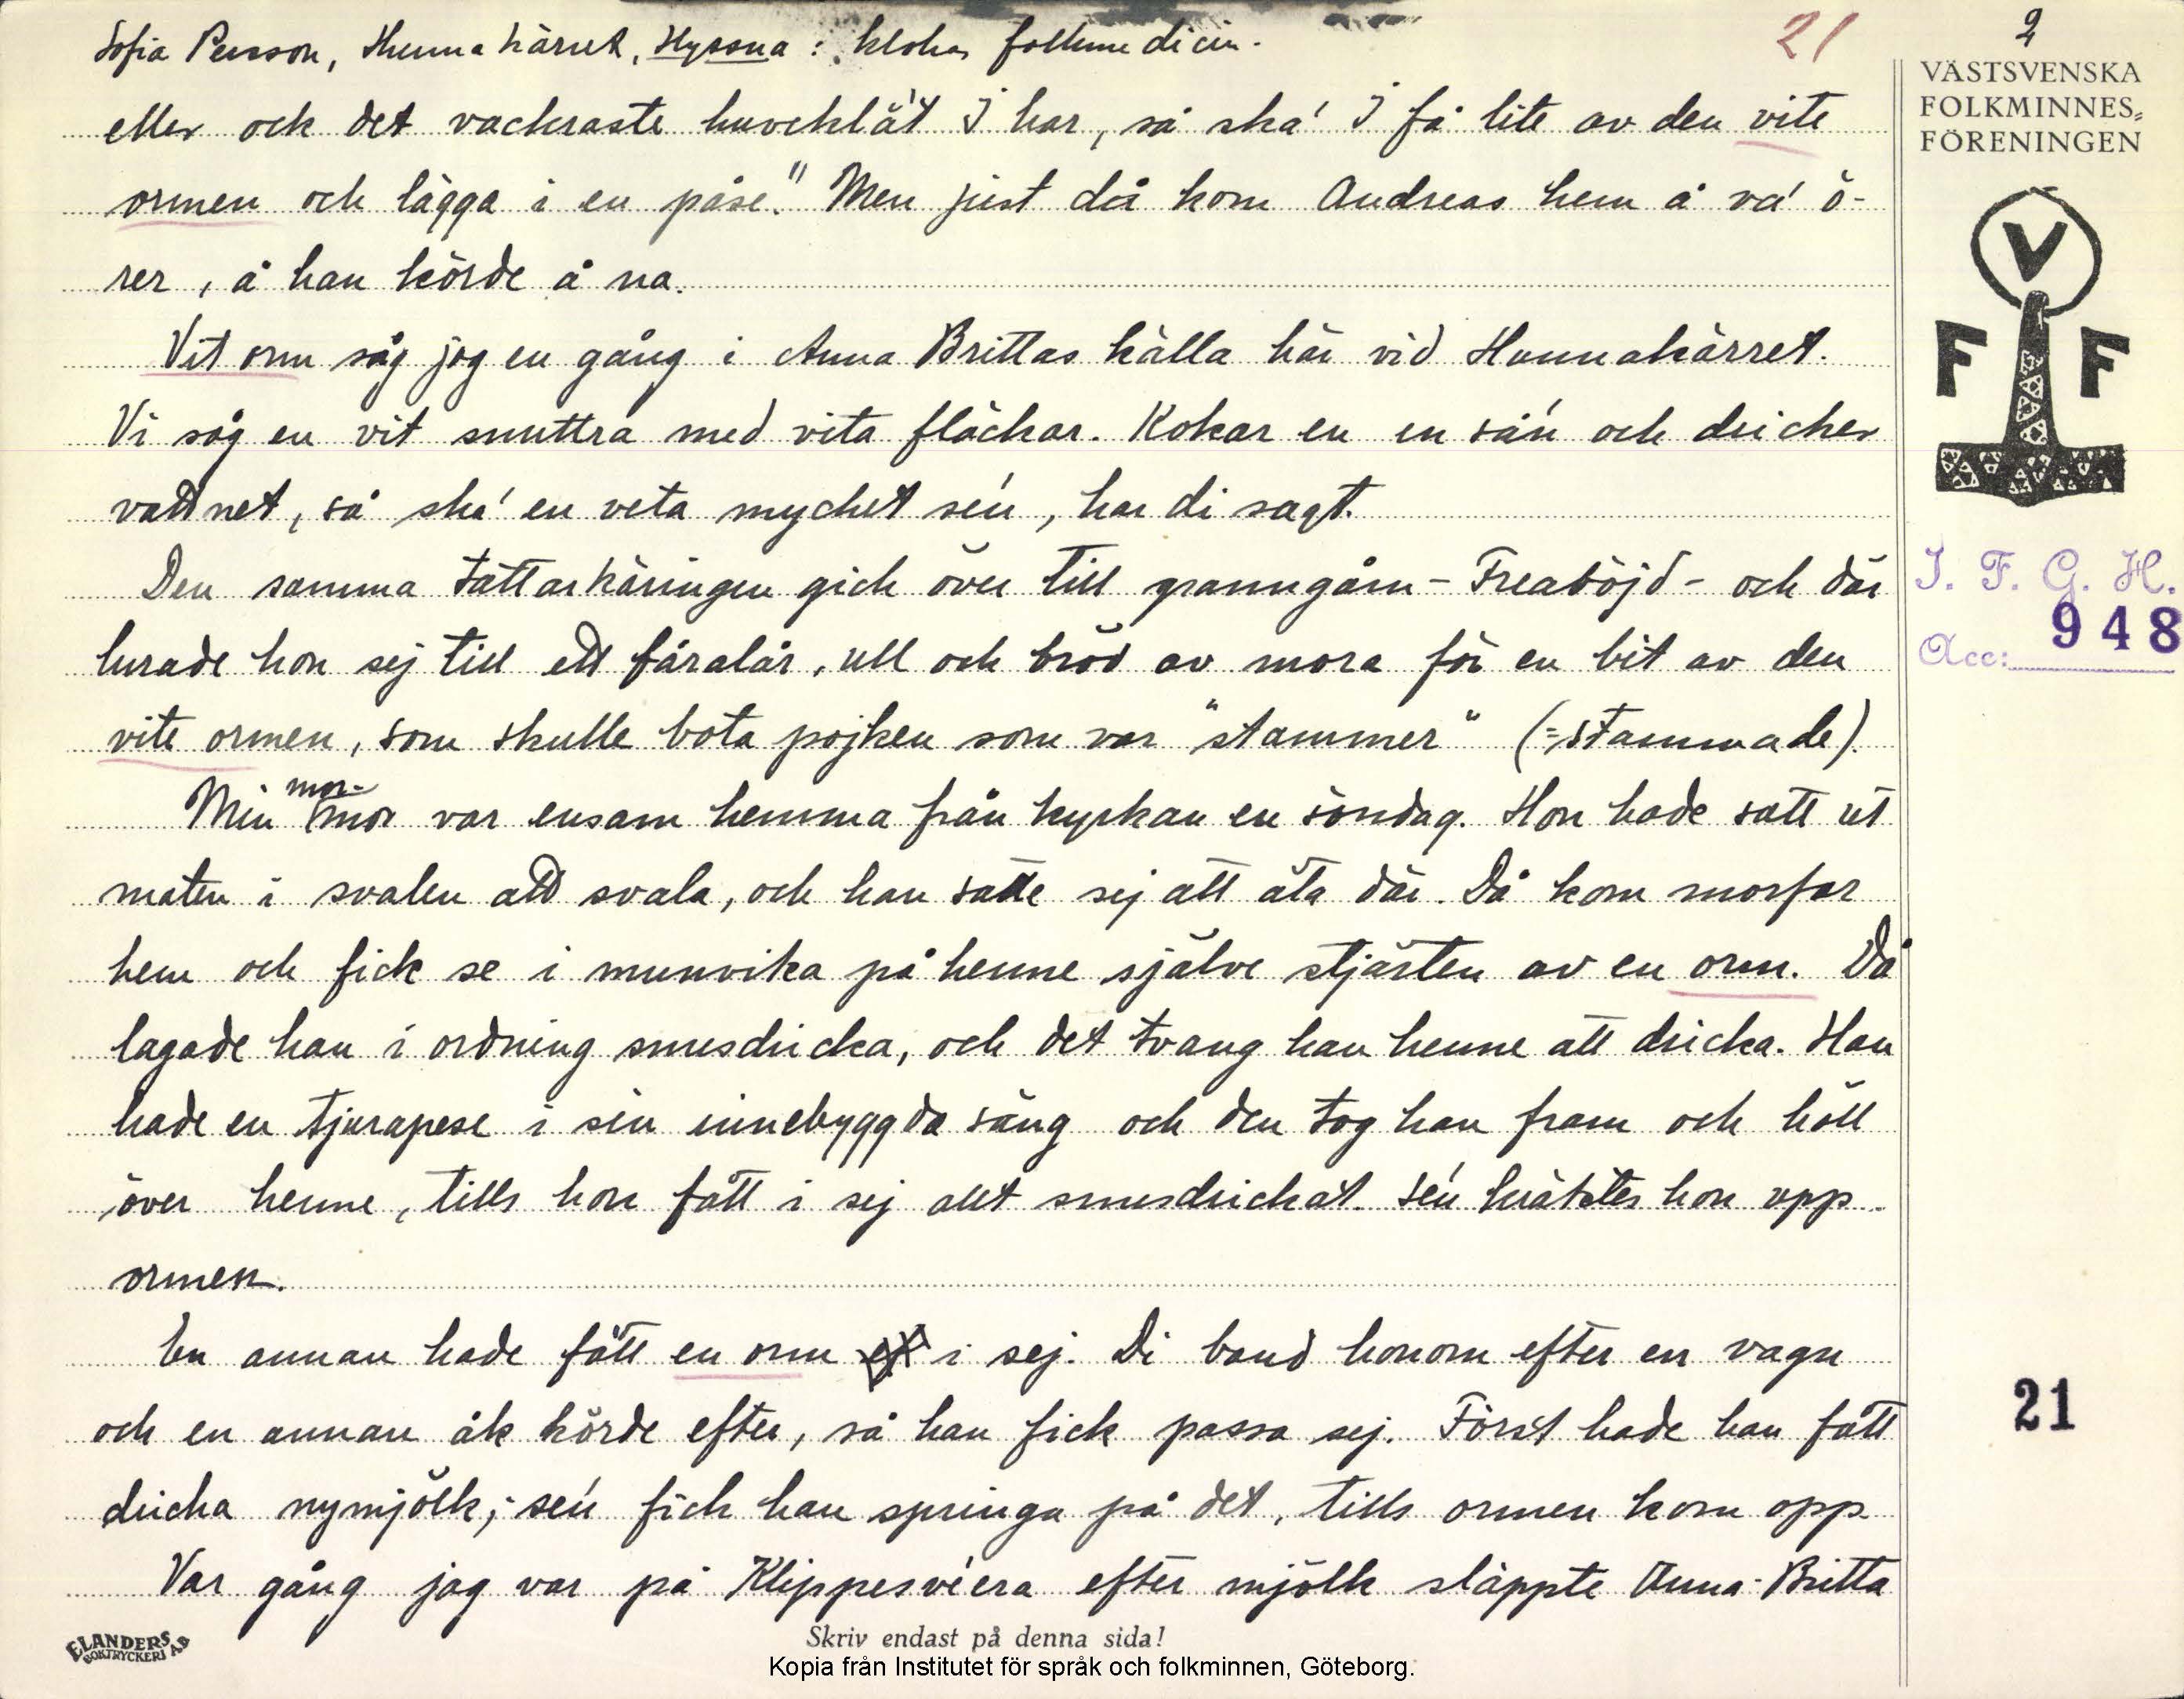 Sofia Persson, Hunnakärret, Hyssna: kloka, folkmedicin.
21
2
VÄSTSVENSKA
FOLKMINNES=
FÖRENINGEN
eller och det vackraste huvcklä't I har, så ska' I få lite av den vite
ormen och lägga i en påse." Men just då kom Andreas hem å va' ö-
rer, å han körde å na.
Vit orm såg jag en gång i Anna Brittas källa här vid Hunnakärret.
Vi såg en vit snuttra med vita fläckar. Kokar en en sån' och dricker
vattnet, så ska' en veta mycket se'n, har di sagt.
Den samma tattarkäringen gick över till granngårn - Freaböjd - och där
lurade hon sej till ett fåralår, ull och bröd av mora för en bit av den
vite ormen, som skulle bota pojken som var "stammer" (= stammade).
Min mor-
mor var ensam hemma från kyrkan en söndag. Hon hade satt ut
maten i svalen att svala, och han satte sej att äta där. Då kom morfar
hem och fick se i munvika på henne själve stjärten av en orm. Då
lagade han i ordning snusdricka, och det tvang han henne att dricka. Han
hade en tjurapese i sin innebyggda säng och den tog han fram och höll
över henne, tills hon fått i sej allt snusdrickat. Se'n kräktes hon opp
ormen.
En annan hade fått en orm i sej. Di band honom efter en vagn
och en annan åk körde efter, så han fick passa sej. Först hade han fått
dricka nymjölk; se'n fick han springa på det, tills ormen kom opp.
Var gång jag var på Klippesve'era efter mjölk släppte Anna-Britta
V
F F
I. F. G. H.
Acc: 948
21
ELANDERS
BOKTRYCKERI AB
Skriv endast på denna sida!
Kopia från Institutet för språk och folkminnen, Göteborg.